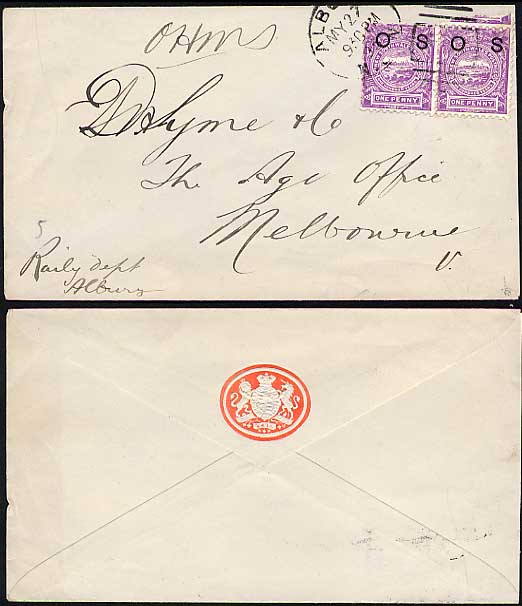 OHMS
ALBU
MY 27
9 30 PM
O S O S
ONE PENNY ONE PENNY
D Syme & Co
The Age Office
Melbourne
V.
5
Railwy dept
Albury